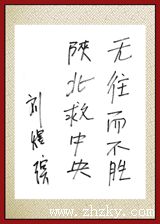 无往而不胜
陕北救中央
刘煜滨
www.zhzky.com